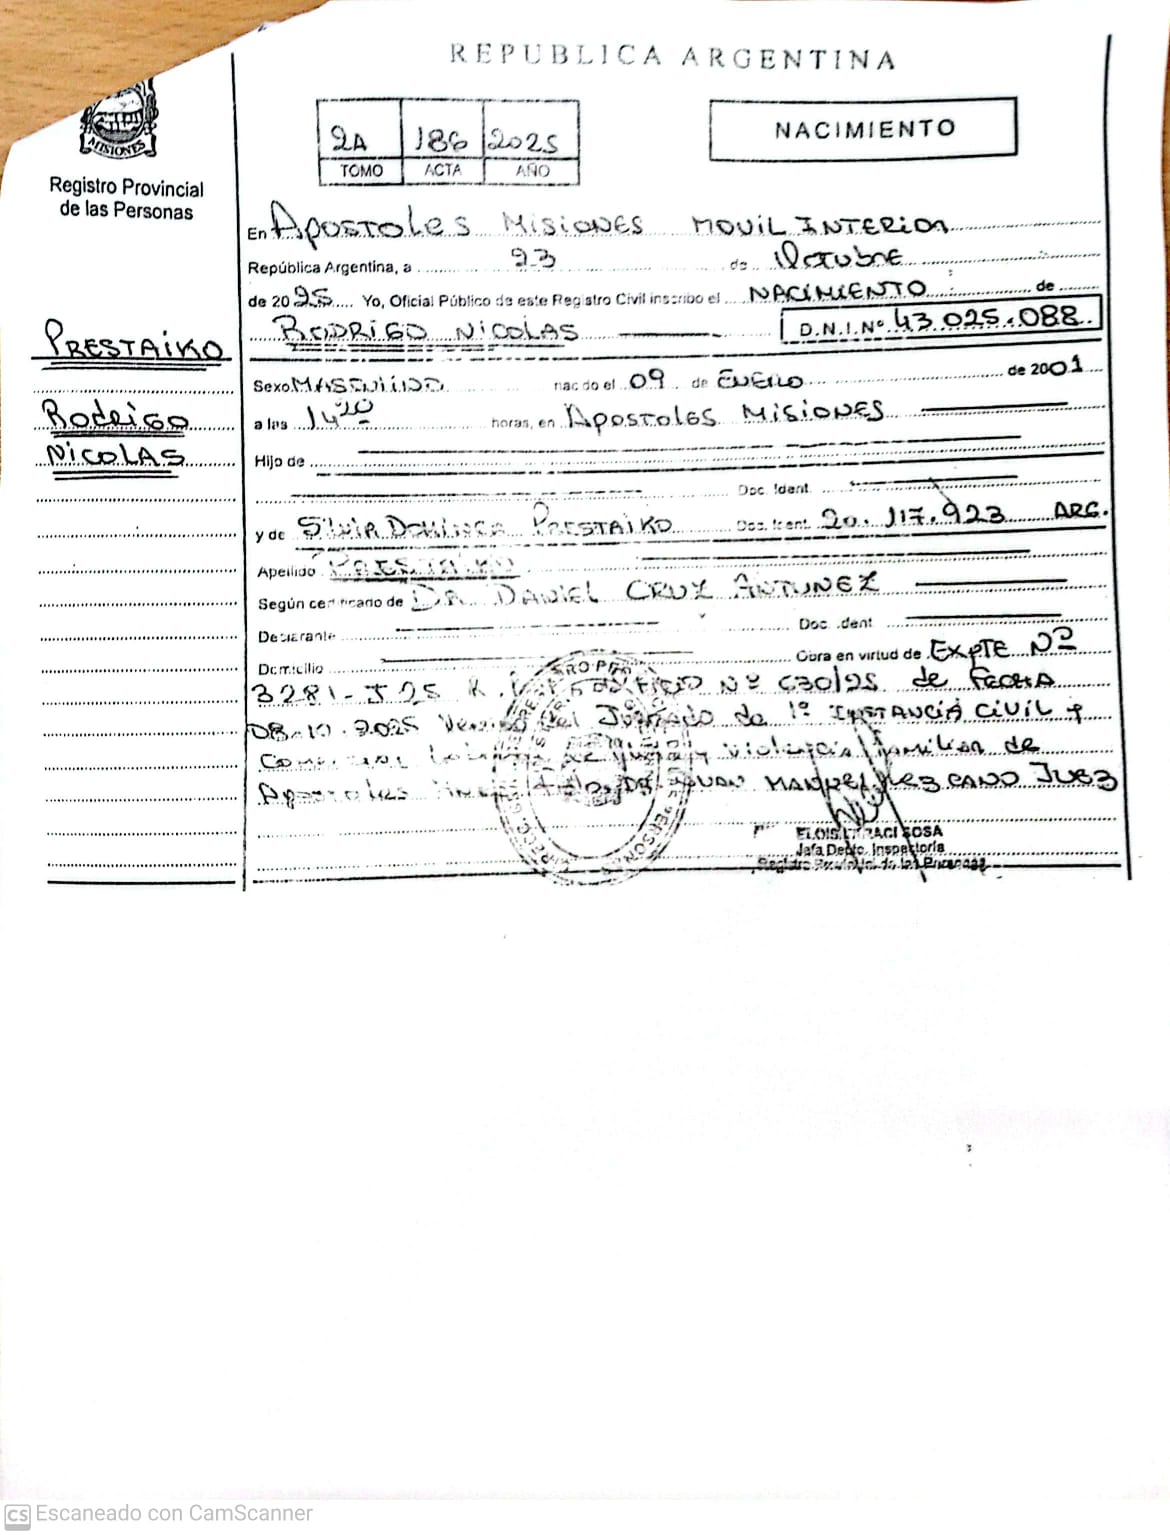 REPUBLICA ARGENTINA
MISIONES
Registro Provincial
de las Personas
2A 186 2025
TOMO ACTA AÑO
NACIMIENTO
En Apostoles Misiones Movil Interior
República Argentina, a 23 de Octubre
de 2025 Yo, Oficial Público de este Registro Civil inscribo el NACIMIENTO de
Rodrigo Nicolas D.N.I. Nº 43.025.088
PRESTAIKO
Rodrigo
Nicolas
Sexo Masculino nacido el 09 de Enero de 2001
a las 14 20 horas, en Apostoles Misiones
Hijo de
Doc. Ident.
y de Silvia Prestaiko Doc. Ident. 20.117.923 ARG.
Apellido Prestaiko
Según certificado de DR DANIEL CRUZ ANTUNEZ
Declarante Doc. Ident
Domicilio Obra en virtud de Expte Nº
3281-J25 Nº 630/25 de Fecha
08-10-2025 del Juzgado de 1º Instancia Civil y
Violencia Familiar de
Apostoles Juan Manuel Juez
SOSA
Jefa Depto. Inspectoría
Registro Provincial de las Personas
CS Escaneado con CamScanner